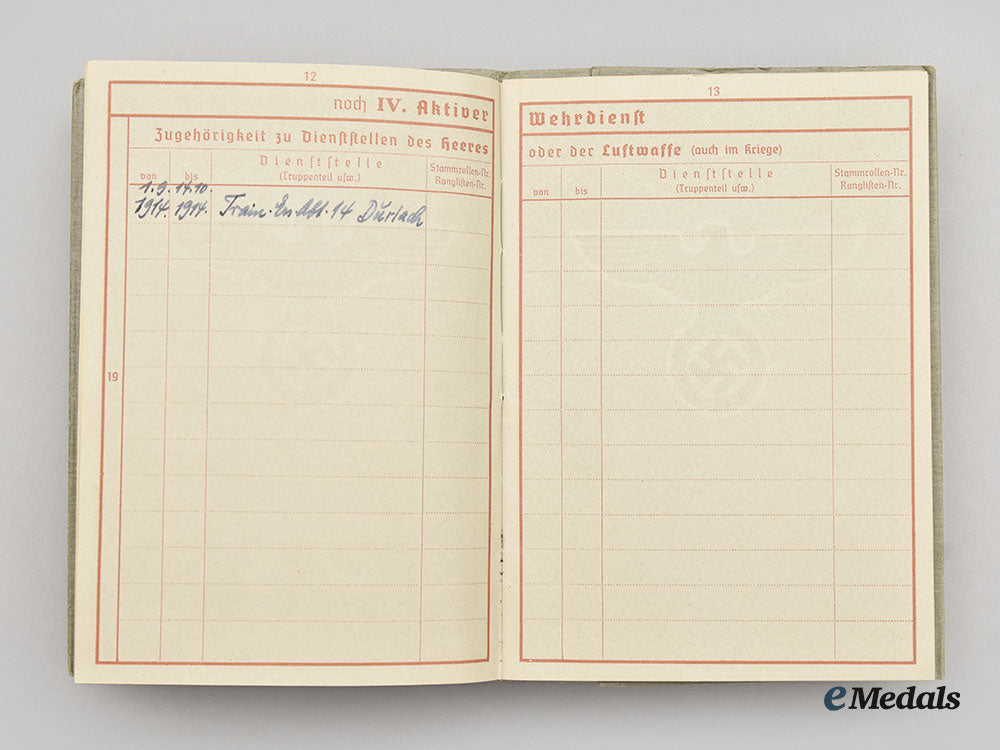 12
noch IV. Aktiver
Zugehörigkeit zu Dienststellen des Heeres
von
bis
Dienststelle
(Truppenteil usw.)
Stammrollen-Nr.
Ranglisten-Nr.
1.9. 14.10.
1914. 1914. Train. Ers. Abt. 14 Durlach
19
13
Wehrdienst
oder der Luftwaffe (auch im Kriege)
von
bis
Dienststelle
(Truppenteil usw.)
Stammrollen-Nr.
Ranglisten-Nr.
eMedals